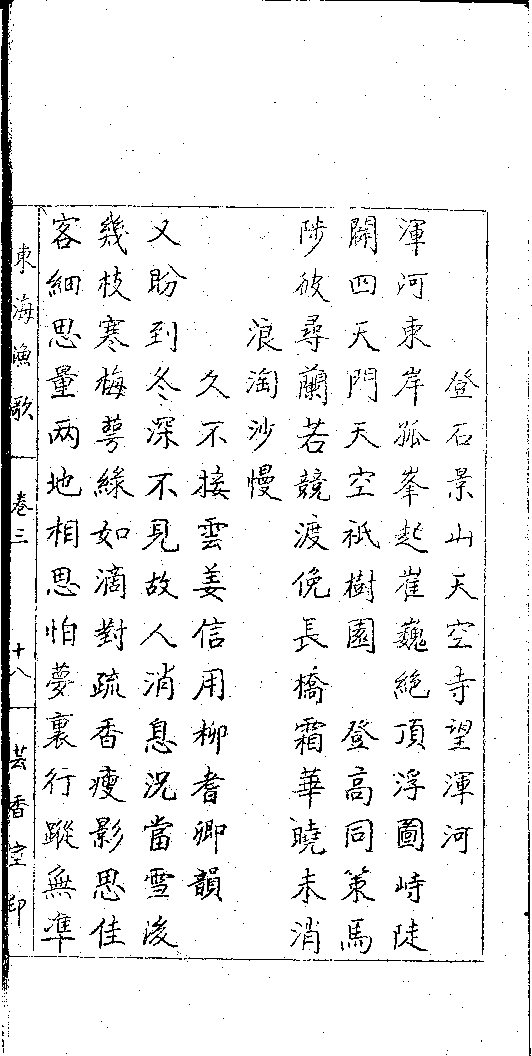 登石景山天空寺望渾河
渾河東岸孤峯起崔巍絶頂浮圖峙陡
闢四天門天空祇樹園　登高同策馬
陟彼尋蘭若競渡俛長橋霜華曉未消
浪淘沙慢
久不接雲姜信用柳耆卿韻
又盼到冬深不見故人消息況當雪後
幾枝寒梅萼綠如滴對疏香瘦影思佳
客細思量兩地相思怕夢裏行蹤無準
東海漁歌　卷三　十八　芸香室印